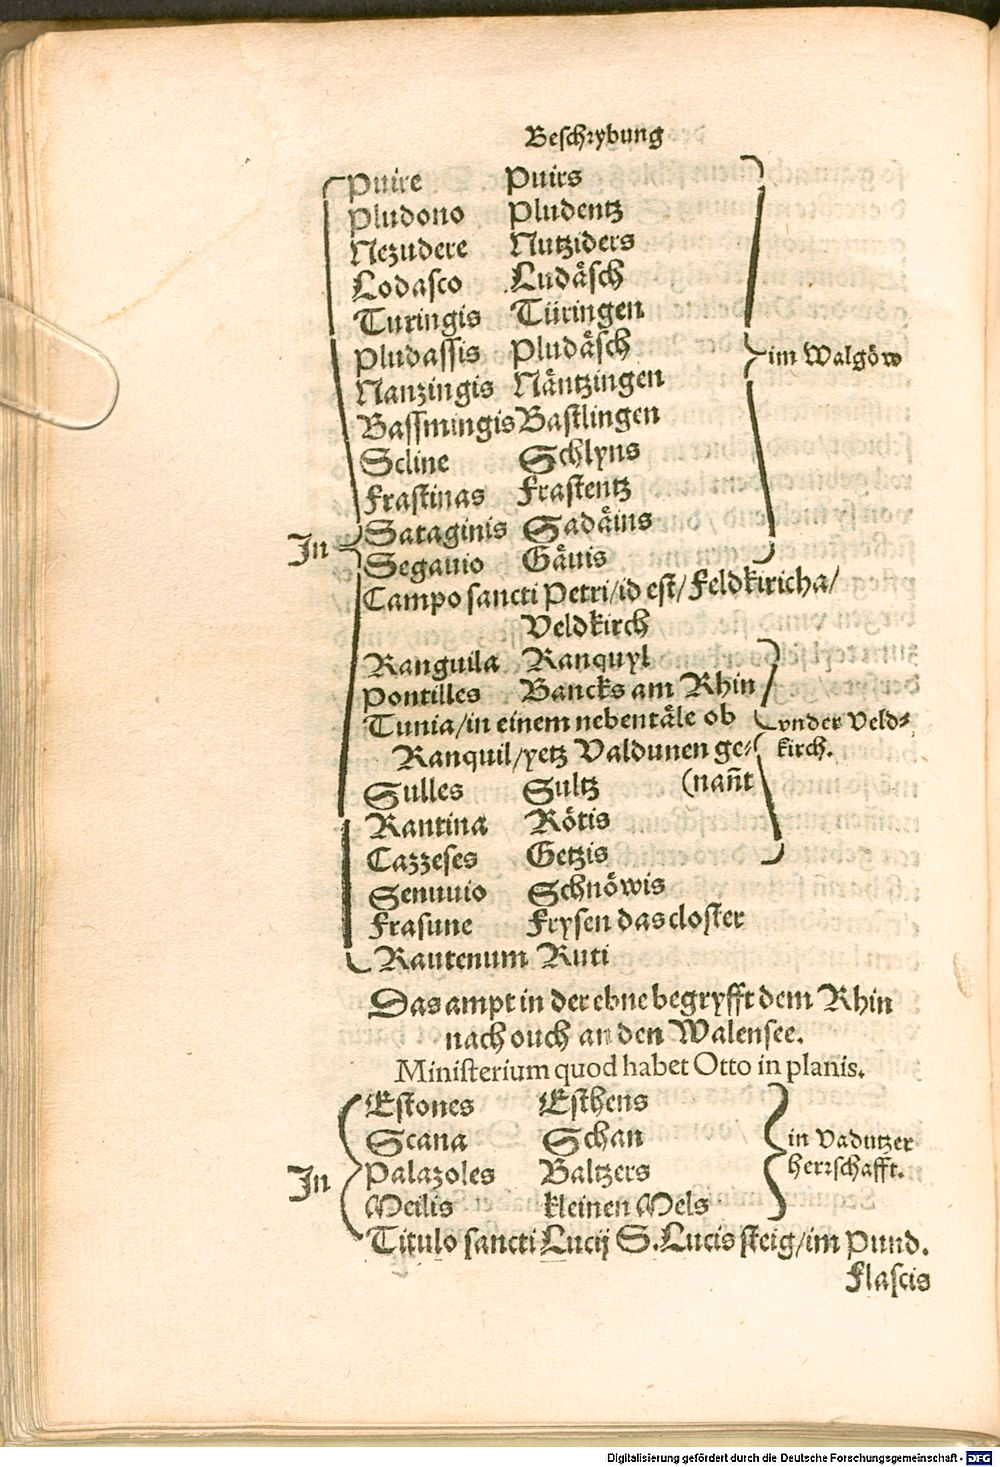 Beschrybung
Puire Puirs
Pludono Pludentz
Nezudere Nutziders
Lodasco Ludäsch
Turingis Türingen
Pludassis Pludäsch
im Walgöw
Nanzingis Näntzingen
Bassmingis Bastlingen
Scline Schlyns
Frastinas Frastentz
Sataginis Sadäins
In
Segauio Gäuis
Campo sancti Petri/id est/ Feldkiricha/
Veldkirch
Ranguila Ranquyl
Pontilles Bancks am Rhin
Tunia/in einem nebentäle ob
vnder Veld⸗
Ranquil/yetz Valdunen ge⸗
kirch.
Sulles Sultz (nañt
Rantina Rötis
Cazzeses Getzis
Senuuio Schnöwis
Frasune Frysen das closter
Rautenum Ruti
Das ampt in der ebne begryfft dem Rhin
nach ouch an den Walensee.
Ministerium quod habet Otto in planis.
Estones Esthens
Scana Schan
in Vadutzer
Palazoles Baltzers
herrschafft.
In
Meilis kleinen Mels
Titulo sancti Lucij S. Lucis steig/im Pund.
Flascis
Digitalisierung gefördert durch die Deutsche Forschungsgemeinschaft - DFG